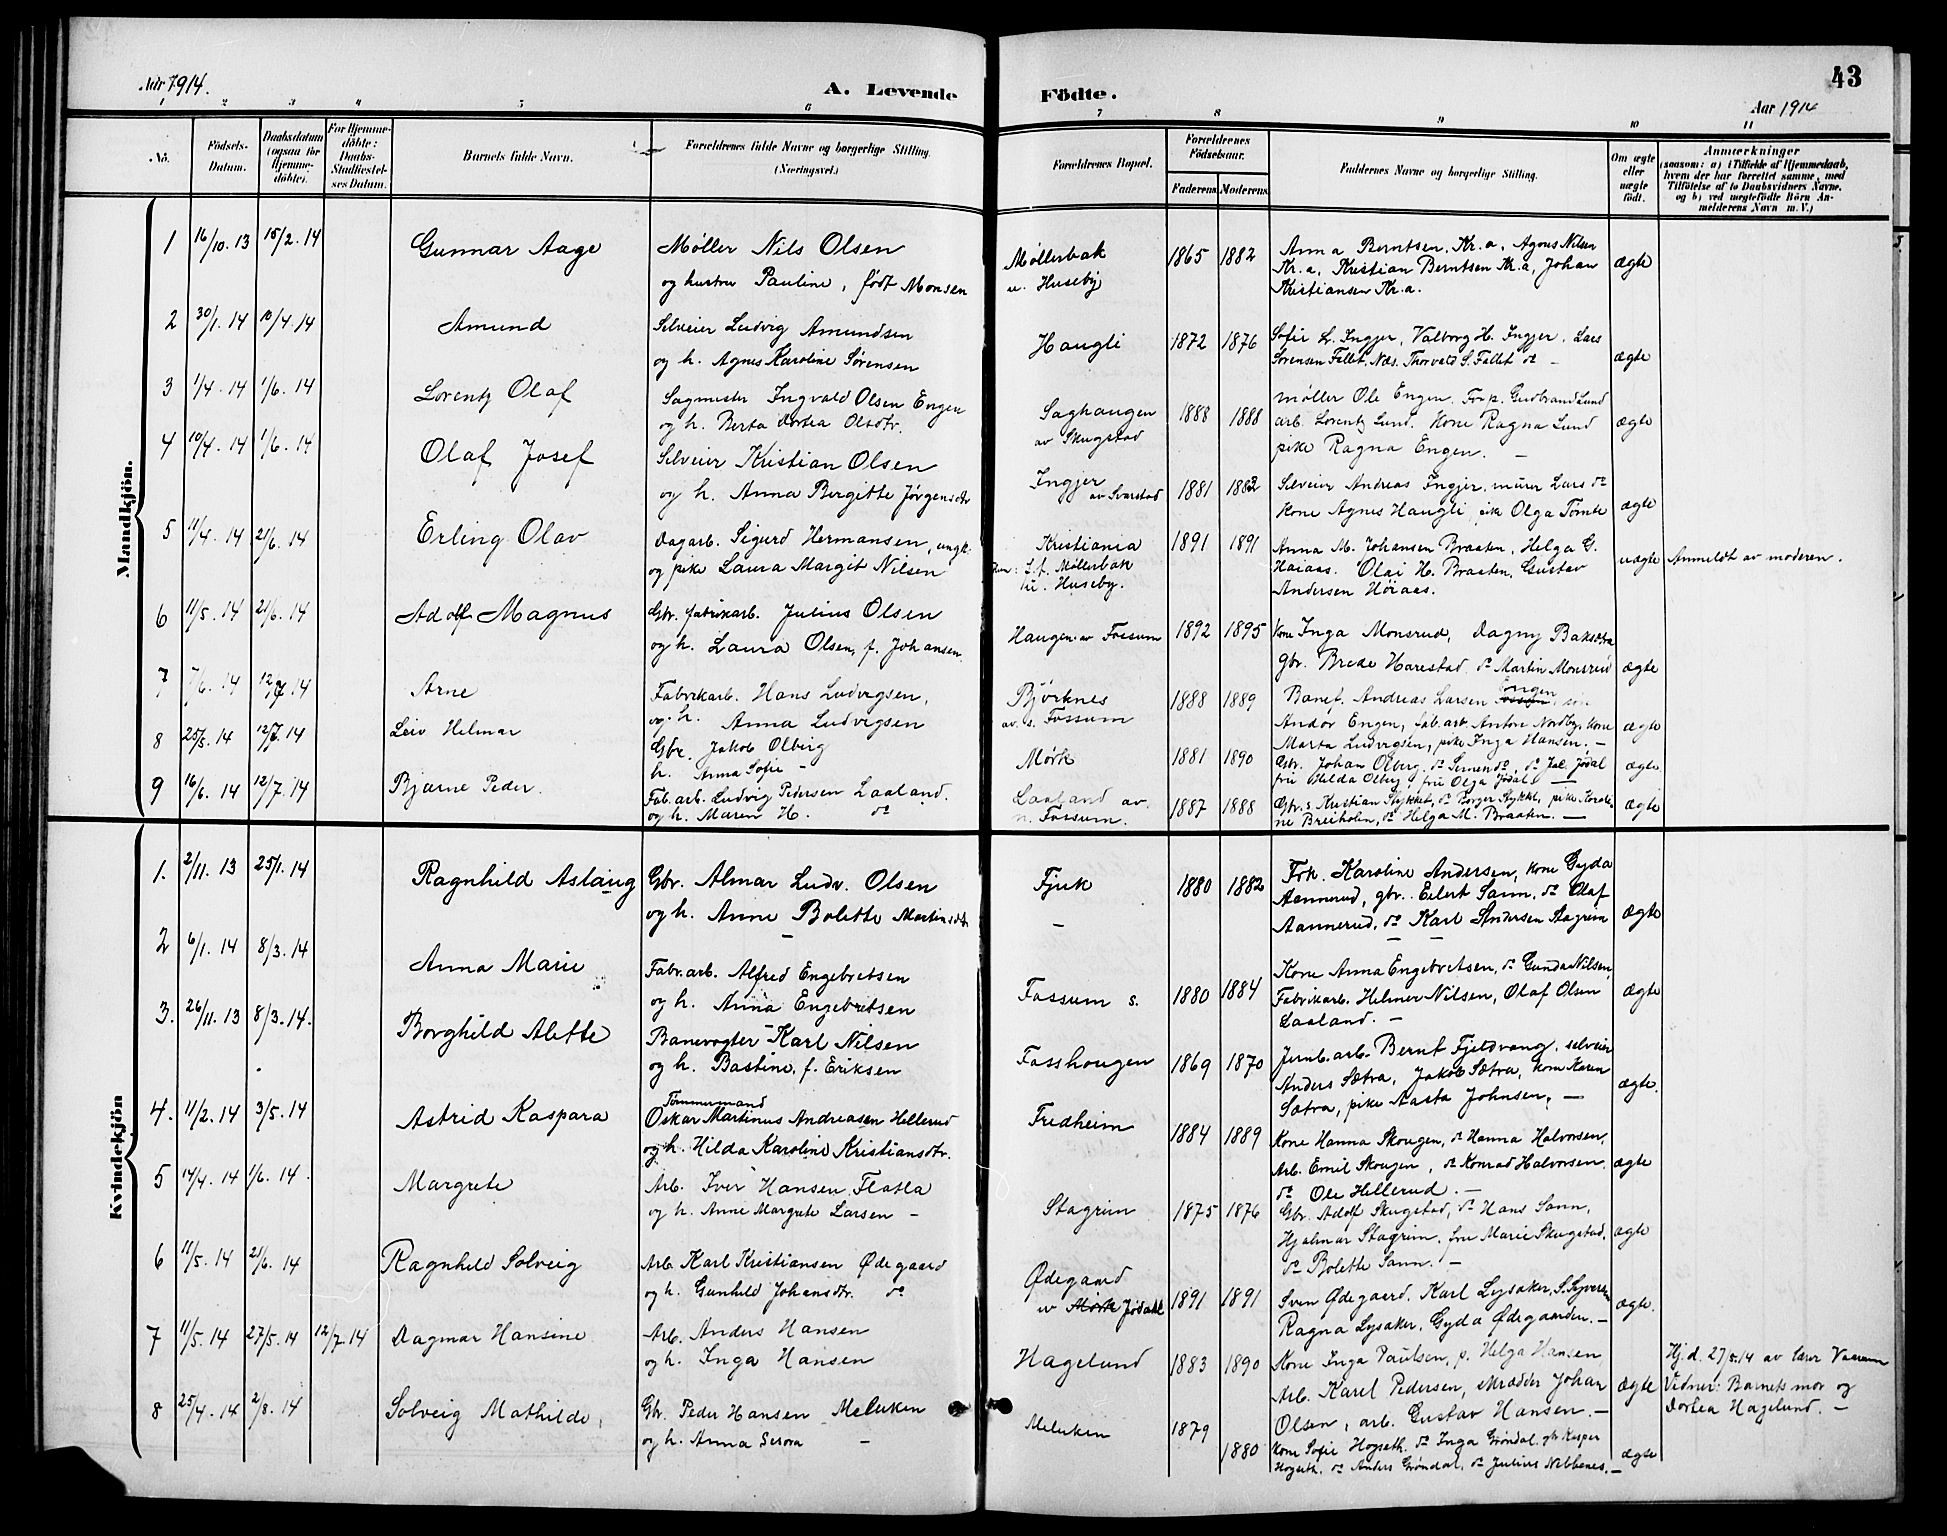 Aar 1914.
A. Levende Födte.
43
Aar 1914
1 2 3 4 5 6 7 8 9 10 11
No.
Födsels-Datum.
Daabsdatum (ogsaa for Hjemme-döbte).
For Hjemme-döbte: Daabs-Stadfæstel-ses Datum.
Barnets fulde Navn.
Forældrenes fulde Navne og borgerlige Stilling. (Næringsvei.)
Forældrenes Bopæl.
Forældrenes Födselsaar.
Faderens Moderens
Faddernes Navne og borgerlige Stilling.
Om ægte eller uægte födt.
Anmærkninger
(saasom: a) i Tilfælde af Hjemmedaab, hvem der har forrettet samme, med Tilföielse af to Daabsvidners Navne. og b) ved uægtefödte Börn An-melderens Navn m. V.)
Mandkjön.
1 16/10.13 15/2.14 Gunnar Aage Møller Nils Olsen
og hustru Pauline, født Monsen
Møllerbak
u. Huseby
1865 1882
Anna Berntsen, Kr.a, Agnes Nilsen
Kr.a, Kristian Berntsen Kr.a, Johan
Kristiansen Kr.a.
ægte
2 30/1.14 10/4.14 Amund Selveier Ludvig Amundsen
og h. Agnes Karoline Sørensen
Haugli 1872 1876
Sofie L. Ingjer, Valborg H. Ingjer, Lars
Sørensen Fallet, Næs. Thorvald S. Fallet do –
ægte
3 1/4.14 1/6.14 Lorentz Olaf Sagmester Ingvald Olsen Engen
og h. Berta Dortea Olsdtr.
Saghaugen
av Skugstad
1888 1888
Møller Ole Engen. Forp. Gudbrand Lund
arb. Lorentz Lund. Kone Ragna Lund
pike Ragna Engen. –
ægte
4 10/4.14 1/6.14 Olaf Josef Selveier Kristian Olsen
og h. Anna Birgitte Jørgensdtr
Ingjer
av Svarstad
1881 1882
Selveier Andreas Ingjer, murer Lars do
Kone Agnes Haugli, pike Olga Tomte
ægte
5 11/4.14 21/6.14 Erling Olav Dagarb. Sigurd Hermansen, ungk.
og pike Laura Margit Nilsen
Kristiania
Møllerbak
u. Huseby.
1891 1891
Anna M. Johansen Braaten, Helga G.
Høiaas. Olai H. Braaten, Gustav
Andersen Høiaas.
uægte Anmeldt av moderen.
6 11/5.14 21/6.14 Adolf Magnus Gbr. fabrikarb. Julius Olsen
og h. Laura Olsen, f. Johansen.
Haugen av Fossum 1892 1895
Kone Inga Monsrud, Dagny
gbr. Brede Harestad do Martin Monsrud
ægte
7 7/6.14 12/7.14 Arne Fabrikarb. Hans Ludvigsen,
og h. Anna Ludvigsen
Bjørknes
av s. Fossum
1888 1889
Banef. Andreas Larsen Engen,
Andor Engen, fab.arb. Anton Nordby, kone
Marta Ludvigsen, pike Inga Hansen. –
ægte
8 25/5.14 12/7.14 Leiv Helmar Gbr. Jakob Olberg
h. Anna Sofie –
Mørk 1881 1890
Gbr. Johan Olberg, do Simen do, do Jac. Jødal
fru Hilda Olberg, fru Olga Jødal –
ægte
9 16/6.14 12/7.14 Bjarne Peder. Fab.arb. Ludvig Pedersen Laaland.
og h. Maren H. do
Laaland av
n. Fossum.
1887 1888
Gbr. s. Kristian Stykket, do Borger Stykket, pike Karoli
ne Breiholen, do Helga M. Braaten. –
ægte
Kvindekjön
1. 2/11.13 25/1.14 Ragnhild Aslaug Gbr. Almar Ludv. Olsen
og h. Anne Bolette Martinsdtr
Fjuk
–
1880 1882
Frk. Karoline Andersen, kone Gyda
Aannerud, gbr. Eilert Sann, do Olaf
Aannerud, do Karl Andersen Stagrim
ægte
2 6/1.14 8/3.14 Anna Marie Fabr.arb. Alfred Engebretsen
og h. Anna Engebretsen
Fossum s. 1880 1884
Kone Anna Engebretsen, do Gunda Nilsen,
Fabrikarb. Helmer Nilsen, Olaf Olsen
Laaland. –
ægte
3. 26/11.13 8/3.14. Borghild Alette Banevogter Karl Nilsen
og h. Bastine, f. Eriksen
Fosshaugen 1869 1870
Jernb.arb. Bernt Fjeldvang, selveier
Anders Sætra, Jakob Sætra, kone Karen
Sætra, pike Aasta Johnsen, –
ægte.
4. 11/2.14 3/5.14 Astrid Kaspara Tømmermand
Oskar Martinus Andreasen Hellerud
og h. Hilda Karoline Kristiansdtr.
Fredheim 1884 1889
Kone Hanna Skougen, do Hanna Halvorsen,
Arb. Emil Skougen, do Konrad Halvorsen.
do Ole Hellerud. –
ægte
5 14/4.14 1/6.14. Margrete Arb. Iver Hansen Flatla
og h. Anne Margrete Larsen –
Stagrim 1875 1876
Gbr. Adolf Skugstad, do Hans Sann,
Hjalmar Stagrim, fru Marie Skugstad,
do Bolette Sann. –
ægte
6 11/5.14 21/6.14 Ragnhild Solveig Arb. Karl Kristiansen Ødegaard
og h. Gunhild Johansdtr. do
Ødegaard
av Mørk Jødahl
1891 1891
Sven Ødegaard. Karl Lysaker, S. Syversen
Ragna Lysaker, Gyda Ødegaarden. –
ægte.
7 11/5.14 27/5.14 12/7.14 Dagmar Hansine Arb. Anders Hansen
og h. Inga Hansen
Hagelund 1883 1890
Kone Inga Paulsen, p. Helga Hansen,
Arb. Karel Pedersen, skrædder Johan
Olsen, arb. Gustav Hansen. –
ægte
Hj.d. 27/5.14 av lærer Vaarum
Vidner: Barnets mor og
Dortea Hagelund. –
8 25/4.14 2/8.14 Solveig Mathilde, Gbr. Peder Hansen Meluken
og h. Anna Serora –
Meluken 1879 1880
Kone Sofie Hogseth. do Inga Grøndal. gbr Kasper
Hogseth. do Anders Grøndal, do Julius Nebbenes. –
ægte